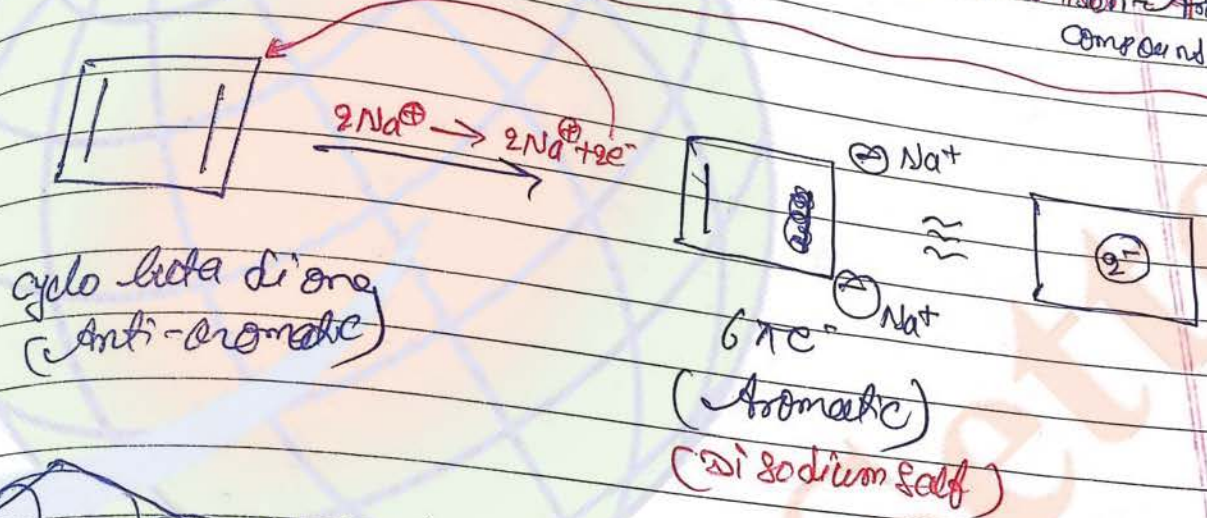 compound
2Na⊕ → 2Na⊕+2e⁻
⊖ Na⁺
≈
2⁻
cyclo buta diene
(Anti-aromatic)
⊖ Na⁺
6πe⁻
(Aromatic)
(Di sodium salt)